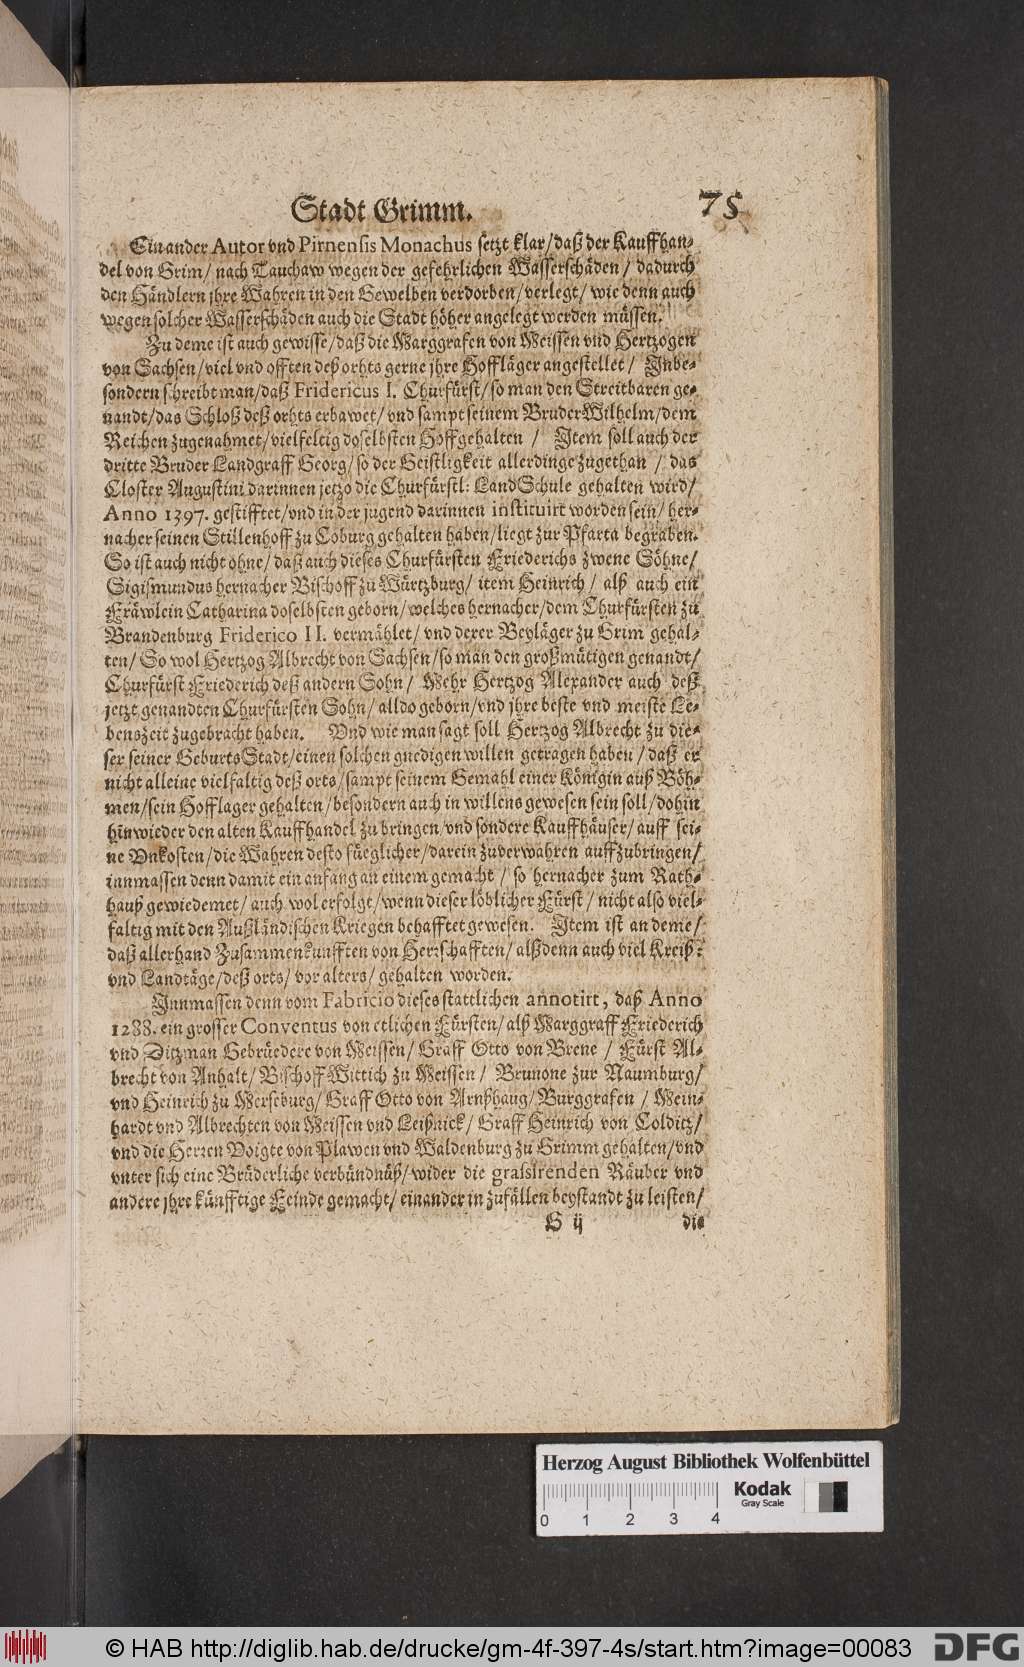 Stadt Grimm. 75
Ein ander Autor vnd Pirnensis Monachus setzt klar/daß der Kauffhan-
del von Grim/ nach Tauchaw wegen der gefehrlichen Wasserschäden / dadurch
den Händlern jhre Wahren in den Gewelben verdorben/verlegt/ wie denn auch
wegen solcher Wasserschäden auch die Stadt höher angelegt werden müssen.
Zu deme ist auch gewisse/daß die Marggrafen von Meissen vnd Hertzogen
von Sachsen/viel vnd offten deß orhts gerne jhre Hoffläger angestellet / Inbe-
sondern schreibt man/daß Fridericus I. Churfürst/so man den Streitbaren ge-
nandt/das Schloß deß orhts erbawet/vnd sampt seinem Bruder Wilhelm/dem
Reichen zugenahmet/vielfeltig doselbsten Hoffgehalten / Item soll auch der
dritte Bruder Landgraff Georg/so der Geistligkeit allerdinge zugethan / das
Closter Augustini darinnen jetzo die Churfürstl: LandSchule gehalten wird/
Anno 1397. gestifftet/vnd in der jugend darinnen instituirt worden sein/ her-
nacher seinen Stillenhoff zu Coburg gehalten haben/liegt zur Pfarta begraben.
So ist auch nicht ohne/ daß auch dieses Churfürsten Friederichs zwene Söhne/
Sigismundus hernacher Bischoff zu Würtzburg/ item Heinrich / alß auch ein
Fräwlein Catharina doselbsten geborn/welches hernacher/dem Churfürsten zu
Brandenburg Friderico II. vermählet/ vnd derer Beyläger zu Grim gehal-
ten/ So wol Hertzog Albrecht von Sachsen/so man den großmütigen genandt/
Churfürst Friederich deß andern Sohn/ Mehr Hertzog Alexander auch deß
jetzt genandten Churfürsten Sohn/ alldo geborn/vnd jhre beste vnd meiste Le-
benszeit zugebracht haben. Vnd wie man sagt soll Hertzog Albrecht zu die-
ser seiner GeburtsStadt/einen solchen gnedigen willen getragen haben / daß er
nicht alleine vielfaltig deß orts/sampt seinem Gemahl einer Königin auß Böh-
men/sein Hofflager gehalten/besondern auch in willens gewesen sein soll/dohin
hinwieder den alten Kauffhandel zu bringen/vnd sondere Kauffhäuser/auff sei-
ne Vnkosten/die Wahren desto füeglicher/darein zuverwahren auffzubringen/
innmassen denn damit ein anfang an einem gemacht / so hernacher zum Rath-
hauß gewiedemet/ auch wol erfolgt/wenn dieser löblicher Fürst / nicht also viel-
faltig mit den Außländischen Kriegen behafftet gewesen. Item ist an deme/
daß allerhand Zusammenkunfften von Herrschafften/ alßdenn auch viel Kreiß-
vnd Landtäge/deß orts/ vor alters/ gehalten worden.
Innmassen denn vom Fabricio dieses stattlichen annotirt, daß Anno
1288. ein grosser Conventus von etlichen Fürsten/ alß Marggraff Friederich
vnd Ditzman Gebrüedere von Meissen/ Graff Otto von Brene / Fürst Al-
brecht von Anhalt/ Bischoff Wittich zu Meissen / Brunone zur Naumburg/
vnd Heinrich zu Merseburg/ Graff Otto von Arnßhaug/ Burggrafen / Mein-
hardt vnd Albrechten von Meissen vnd Leißnick/ Graff Heinrich von Colditz/
vnd die Herren Voigte von Plawen vnd Waldenburg zu Grimm gehalten/vnd
vnter sich eine Brüderliche verbündnüß/wider die grassirenden Räuber vnd
andere jhre künfftige Feinde gemacht/ einander in zufällen beystandt zu leisten/
G ij die
Herzog August Bibliothek Wolfenbüttel
Kodak
Gray Scale
0 1 2 3 4
© HAB http://diglib.hab.de/drucke/gm-4f-397-4s/start.htm?image=00083 DFG